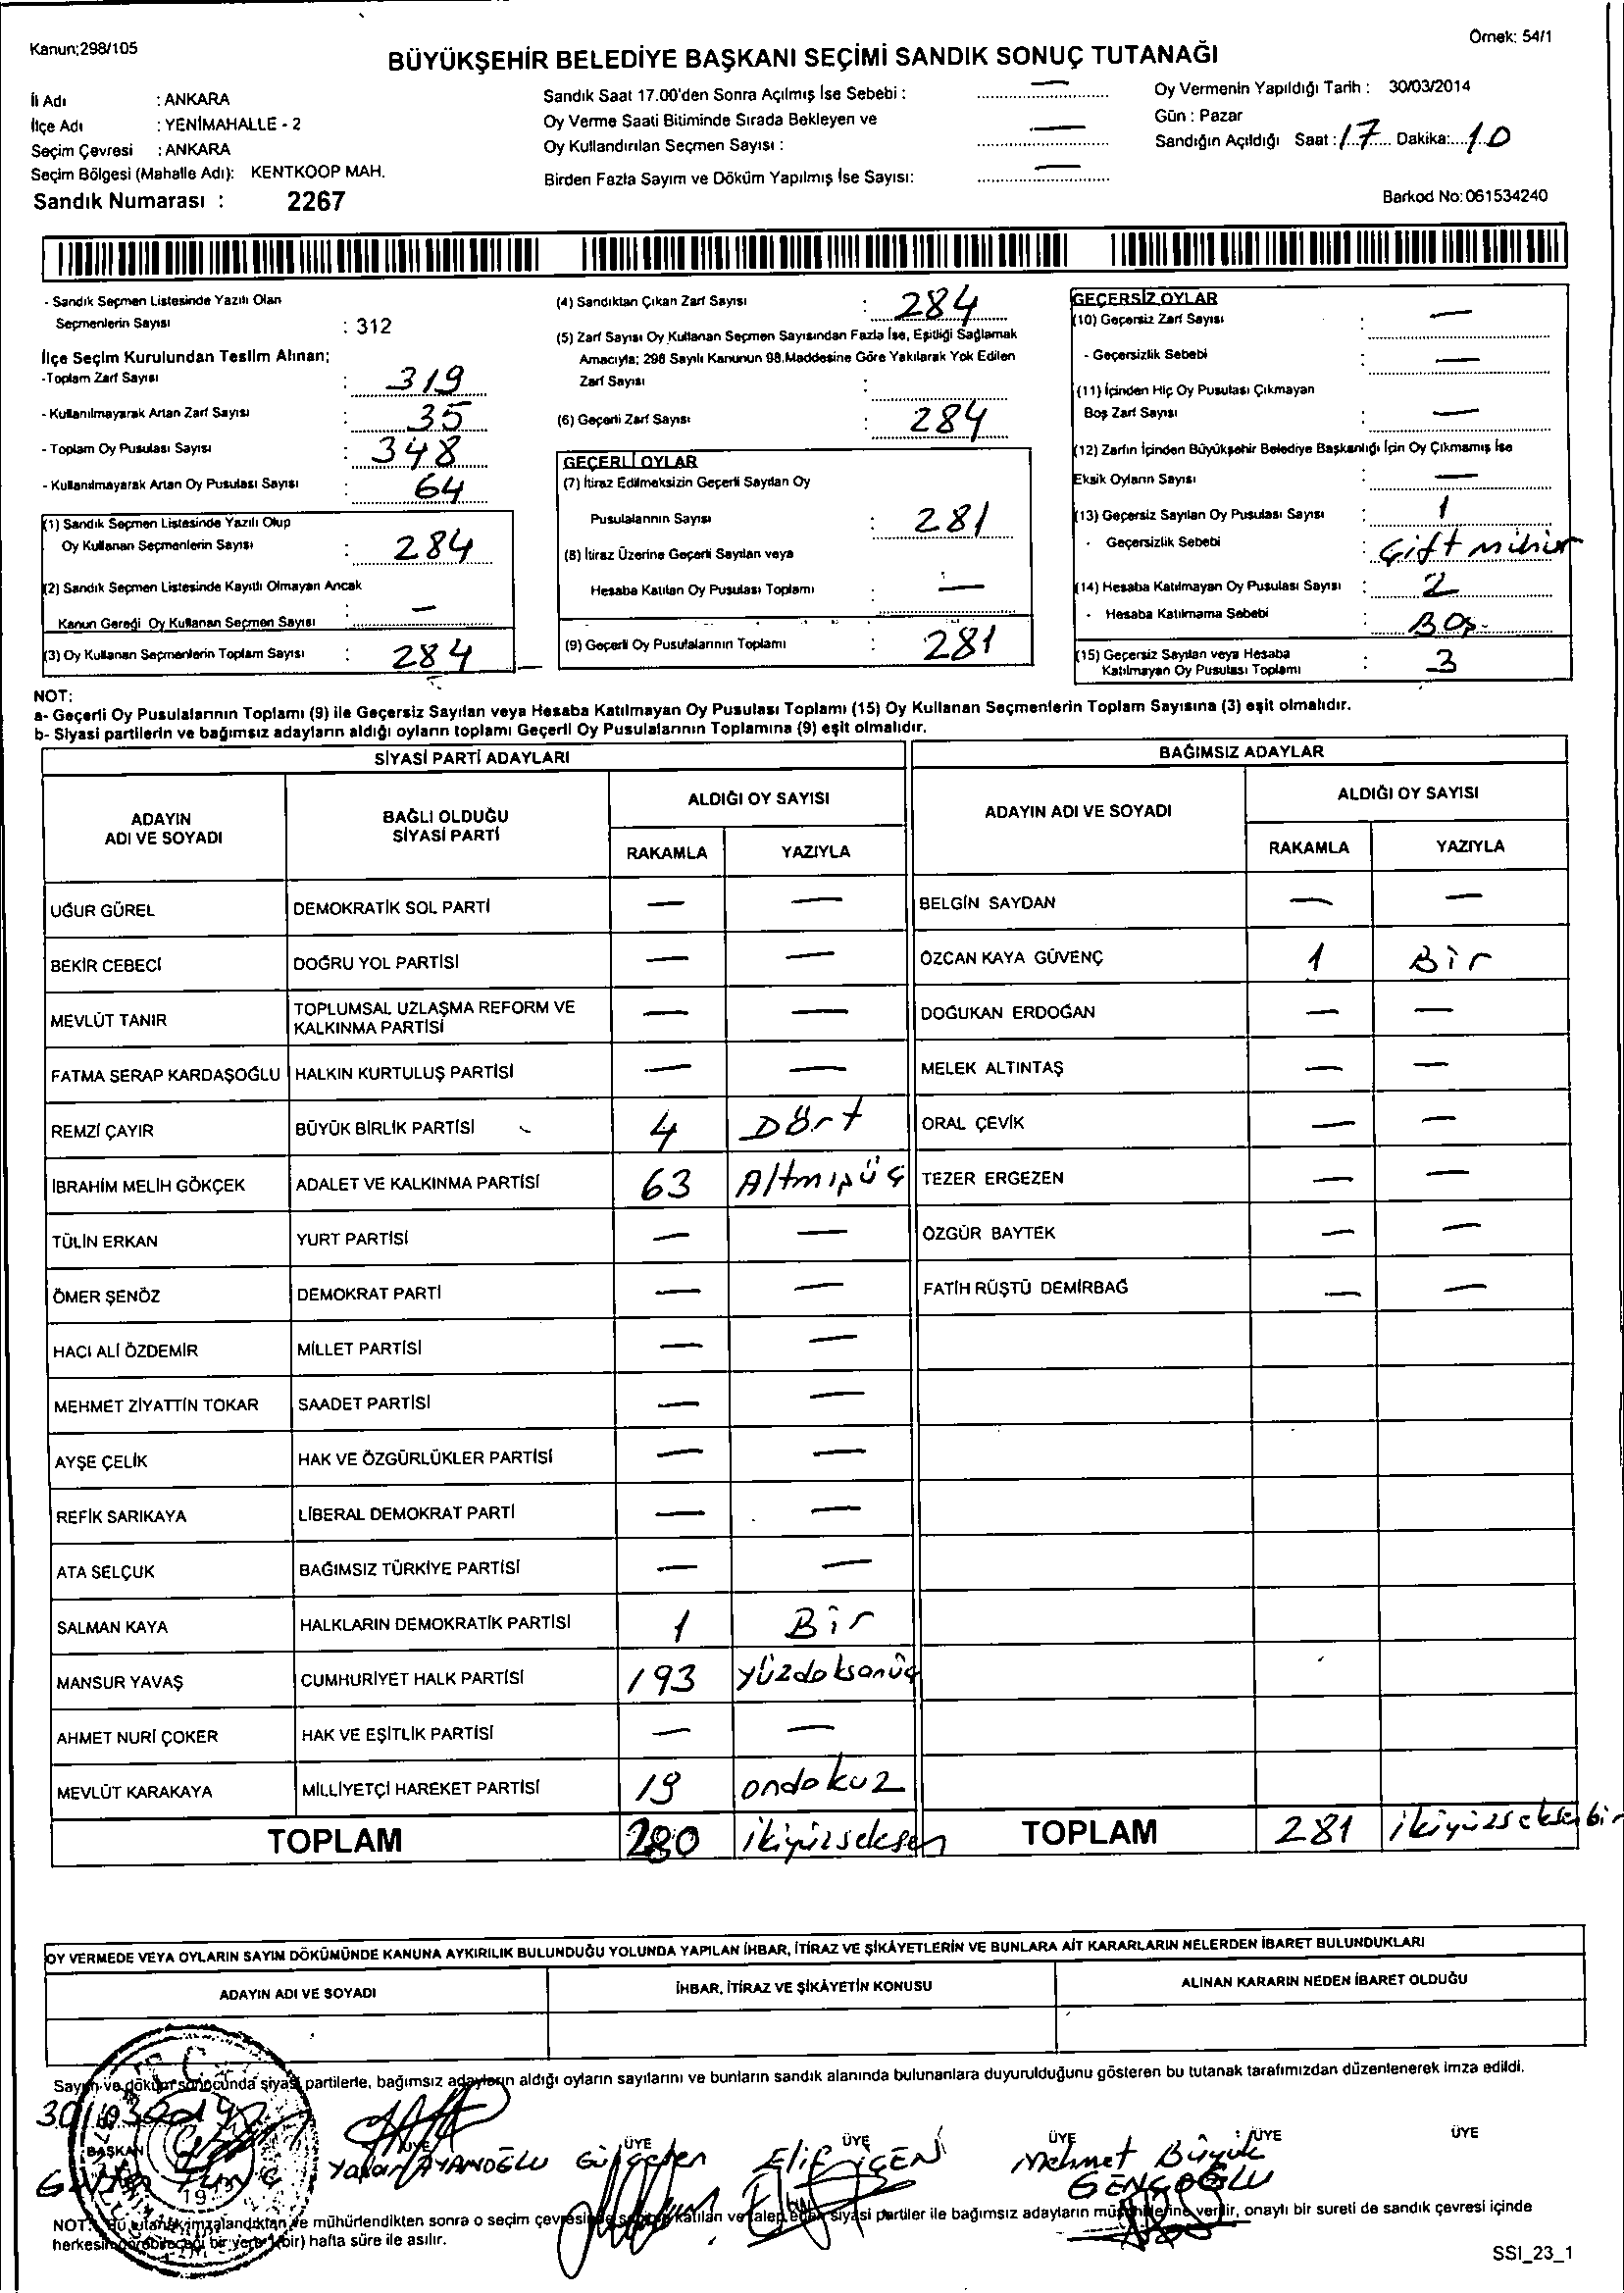 Kanun;298/105
Örnek: 54/1
BÜYÜKŞEHİR BELEDİYE BAŞKANI SEÇİMİ SANDIK SONUÇ TUTANAĞI
İl Adı : ANKARA
İlçe Adı : YENİMAHALLE - 2
Seçim Çevresi : ANKARA
Seçim Bölgesi (Mahalle Adı): KENTKOOP MAH.
Sandık Numarası : 2267
Sandık Saat 17.00'den Sonra Açılmış İse Sebebi : —
Oy Verme Saati Bitiminde Sırada Bekleyen ve
Oy Kullandırılan Seçmen Sayısı : —
Birden Fazla Sayım ve Döküm Yapılmış İse Sayısı: —
Oy Vermenin Yapıldığı Tarih : 30/03/2014
Gün : Pazar
Sandığın Açıldığı Saat : 17 Dakika: 10
Barkod No: 061534240
- Sandık Seçmen Listesinde Yazılı Olan
Seçmenlerin Sayısı : 312
İlçe Seçim Kurulundan Teslim Alınan;
-Toplam Zarf Sayısı : 319
- Kullanılmayarak Artan Zarf Sayısı : 35
- Toplam Oy Pusulası Sayısı : 348
- Kullanılmayarak Artan Oy Pusulası Sayısı : 64
(1) Sandık Seçmen Listesinde Yazılı Olup
Oy Kullanan Seçmenlerin Sayısı : 284
(2) Sandık Seçmen Listesinde Kayıtlı Olmayan Ancak
Kanun Gereği Oy Kullanan Seçmen Sayısı : —
(3) Oy Kullanan Seçmenlerin Toplam Sayısı : 284
(4) Sandıktan Çıkan Zarf Sayısı : 284
(5) Zarf Sayısı Oy Kullanan Seçmen Sayısından Fazla İse, Eşitliği Sağlamak
Amacıyla; 298 Sayılı Kanunun 98.Maddesine Göre Yakılarak Yok Edilen
Zarf Sayısı :
(6) Geçerli Zarf Sayısı : 284
GEÇERLİ OYLAR
(7) İtiraz Edilmeksizin Geçerli Sayılan Oy
Pusulalarının Sayısı : 281
(8) İtiraz Üzerine Geçerli Sayılan veya
Hesaba Katılan Oy Pusulası Toplamı : —
(9) Geçerli Oy Pusulalarının Toplamı : 281
GEÇERSİZ OYLAR
(10) Geçersiz Zarf Sayısı : —
- Geçersizlik Sebebi : —
(11) İçinden Hiç Oy Pusulası Çıkmayan
Boş Zarf Sayısı : —
(12) Zarfın İçinden Büyükşehir Belediye Başkanlığı İçin Oy Çıkmamış İse
Eksik Oyların Sayısı : —
(13) Geçersiz Sayılan Oy Pusulası Sayısı : 1
- Geçersizlik Sebebi : Çift mühür
(14) Hesaba Katılmayan Oy Pusulası Sayısı : 2
- Hesaba Katılmama Sebebi : Boş.
(15) Geçersiz Sayılan veya Hesaba
Katılmayan Oy Pusulası Toplamı : 3
NOT:
a- Geçerli Oy Pusulalarının Toplamı (9) ile Geçersiz Sayılan veya Hesaba Katılmayan Oy Pusulası Toplamı (15) Oy Kullanan Seçmenlerin Toplam Sayısına (3) eşit olmalıdır.
b- Siyasi partilerin ve bağımsız adayların aldığı oyların toplamı Geçerli Oy Pusulalarının Toplamına (9) eşit olmalıdır.
SİYASİ PARTİ ADAYLARI BAĞIMSIZ ADAYLAR
ADAYIN ADI VE SOYADI BAĞLI OLDUĞU SİYASİ PARTİ ALDIĞI OY SAYISI ADAYIN ADI VE SOYADI ALDIĞI OY SAYISI
RAKAMLA YAZIYLA RAKAMLA YAZIYLA
UĞUR GÜREL DEMOKRATİK SOL PARTİ — — BELGİN SAYDAN — —
BEKİR CEBECİ DOĞRU YOL PARTİSİ — — ÖZCAN KAYA GÜVENÇ 1 Bir
MEVLÜT TANIR TOPLUMSAL UZLAŞMA REFORM VE KALKINMA PARTİSİ — — DOĞUKAN ERDOĞAN — —
FATMA SERAP KARDAŞOĞLU HALKIN KURTULUŞ PARTİSİ — — MELEK ALTINTAŞ — —
REMZİ ÇAYIR BÜYÜK BİRLİK PARTİSİ 4 Dört ORAL ÇEVİK — —
İBRAHİM MELİH GÖKÇEK ADALET VE KALKINMA PARTİSİ 63 Altmışüç TEZER ERGEZEN — —
TÜLİN ERKAN YURT PARTİSİ — — ÖZGÜR BAYTEK — —
ÖMER ŞENÖZ DEMOKRAT PARTİ — — FATİH RÜŞTÜ DEMİRBAĞ — —
HACI ALİ ÖZDEMİR MİLLET PARTİSİ — —
MEHMET ZİYATTİN TOKAR SAADET PARTİSİ — —
AYŞE ÇELİK HAK VE ÖZGÜRLÜKLER PARTİSİ — —
REFİK SARIKAYA LİBERAL DEMOKRAT PARTİ — —
ATA SELÇUK BAĞIMSIZ TÜRKİYE PARTİSİ — —
SALMAN KAYA HALKLARIN DEMOKRATİK PARTİSİ 1 Bir
MANSUR YAVAŞ CUMHURİYET HALK PARTİSİ 193 yüzdoksanüç
AHMET NURİ ÇOKER HAK VE EŞİTLİK PARTİSİ — —
MEVLÜT KARAKAYA MİLLİYETÇİ HAREKET PARTİSİ 19 ondokuz
TOPLAM 280 ikiyüzseksen TOPLAM 281 ikiyüzseksenbir
OY VERMEDE VEYA OYLARIN SAYIM DÖKÜMÜNDE KANUNA AYKIRILIK BULUNDUĞU YOLUNDA YAPILAN İHBAR, İTİRAZ VE ŞİKÂYETLERİN VE BUNLARA AİT KARARLARIN NELERDEN İBARET BULUNDUKLARI
ADAYIN ADI VE SOYADI İHBAR, İTİRAZ VE ŞİKÂYETİN KONUSU ALINAN KARARIN NEDEN İBARET OLDUĞU
Sayım ve döküm sonucunda siyasi partilerle, bağımsız adayların aldığı oyların sayılarını ve bunların sandık alanında bulunanlara duyurulduğunu gösteren bu tutanak tarafımızdan düzenlenerek imza edildi.
30/03/2014
BAŞKAN ÜYE ÜYE ÜYE ÜYE ÜYE ÜYE
Elif İÇEN Mehmet Büyük
GENÇOĞLU
NOT: Bu tutanak imzalandıktan ve mühürlendikten sonra o seçim çevresinde seçime katılan ve talep eden siyasi partiler ile bağımsız adayların müşahitlerine verilir, onaylı bir sureti de sandık çevresi içinde
herkesin görebileceği bir yere 1(bir) hafta süre ile asılır.
SSI_23_1